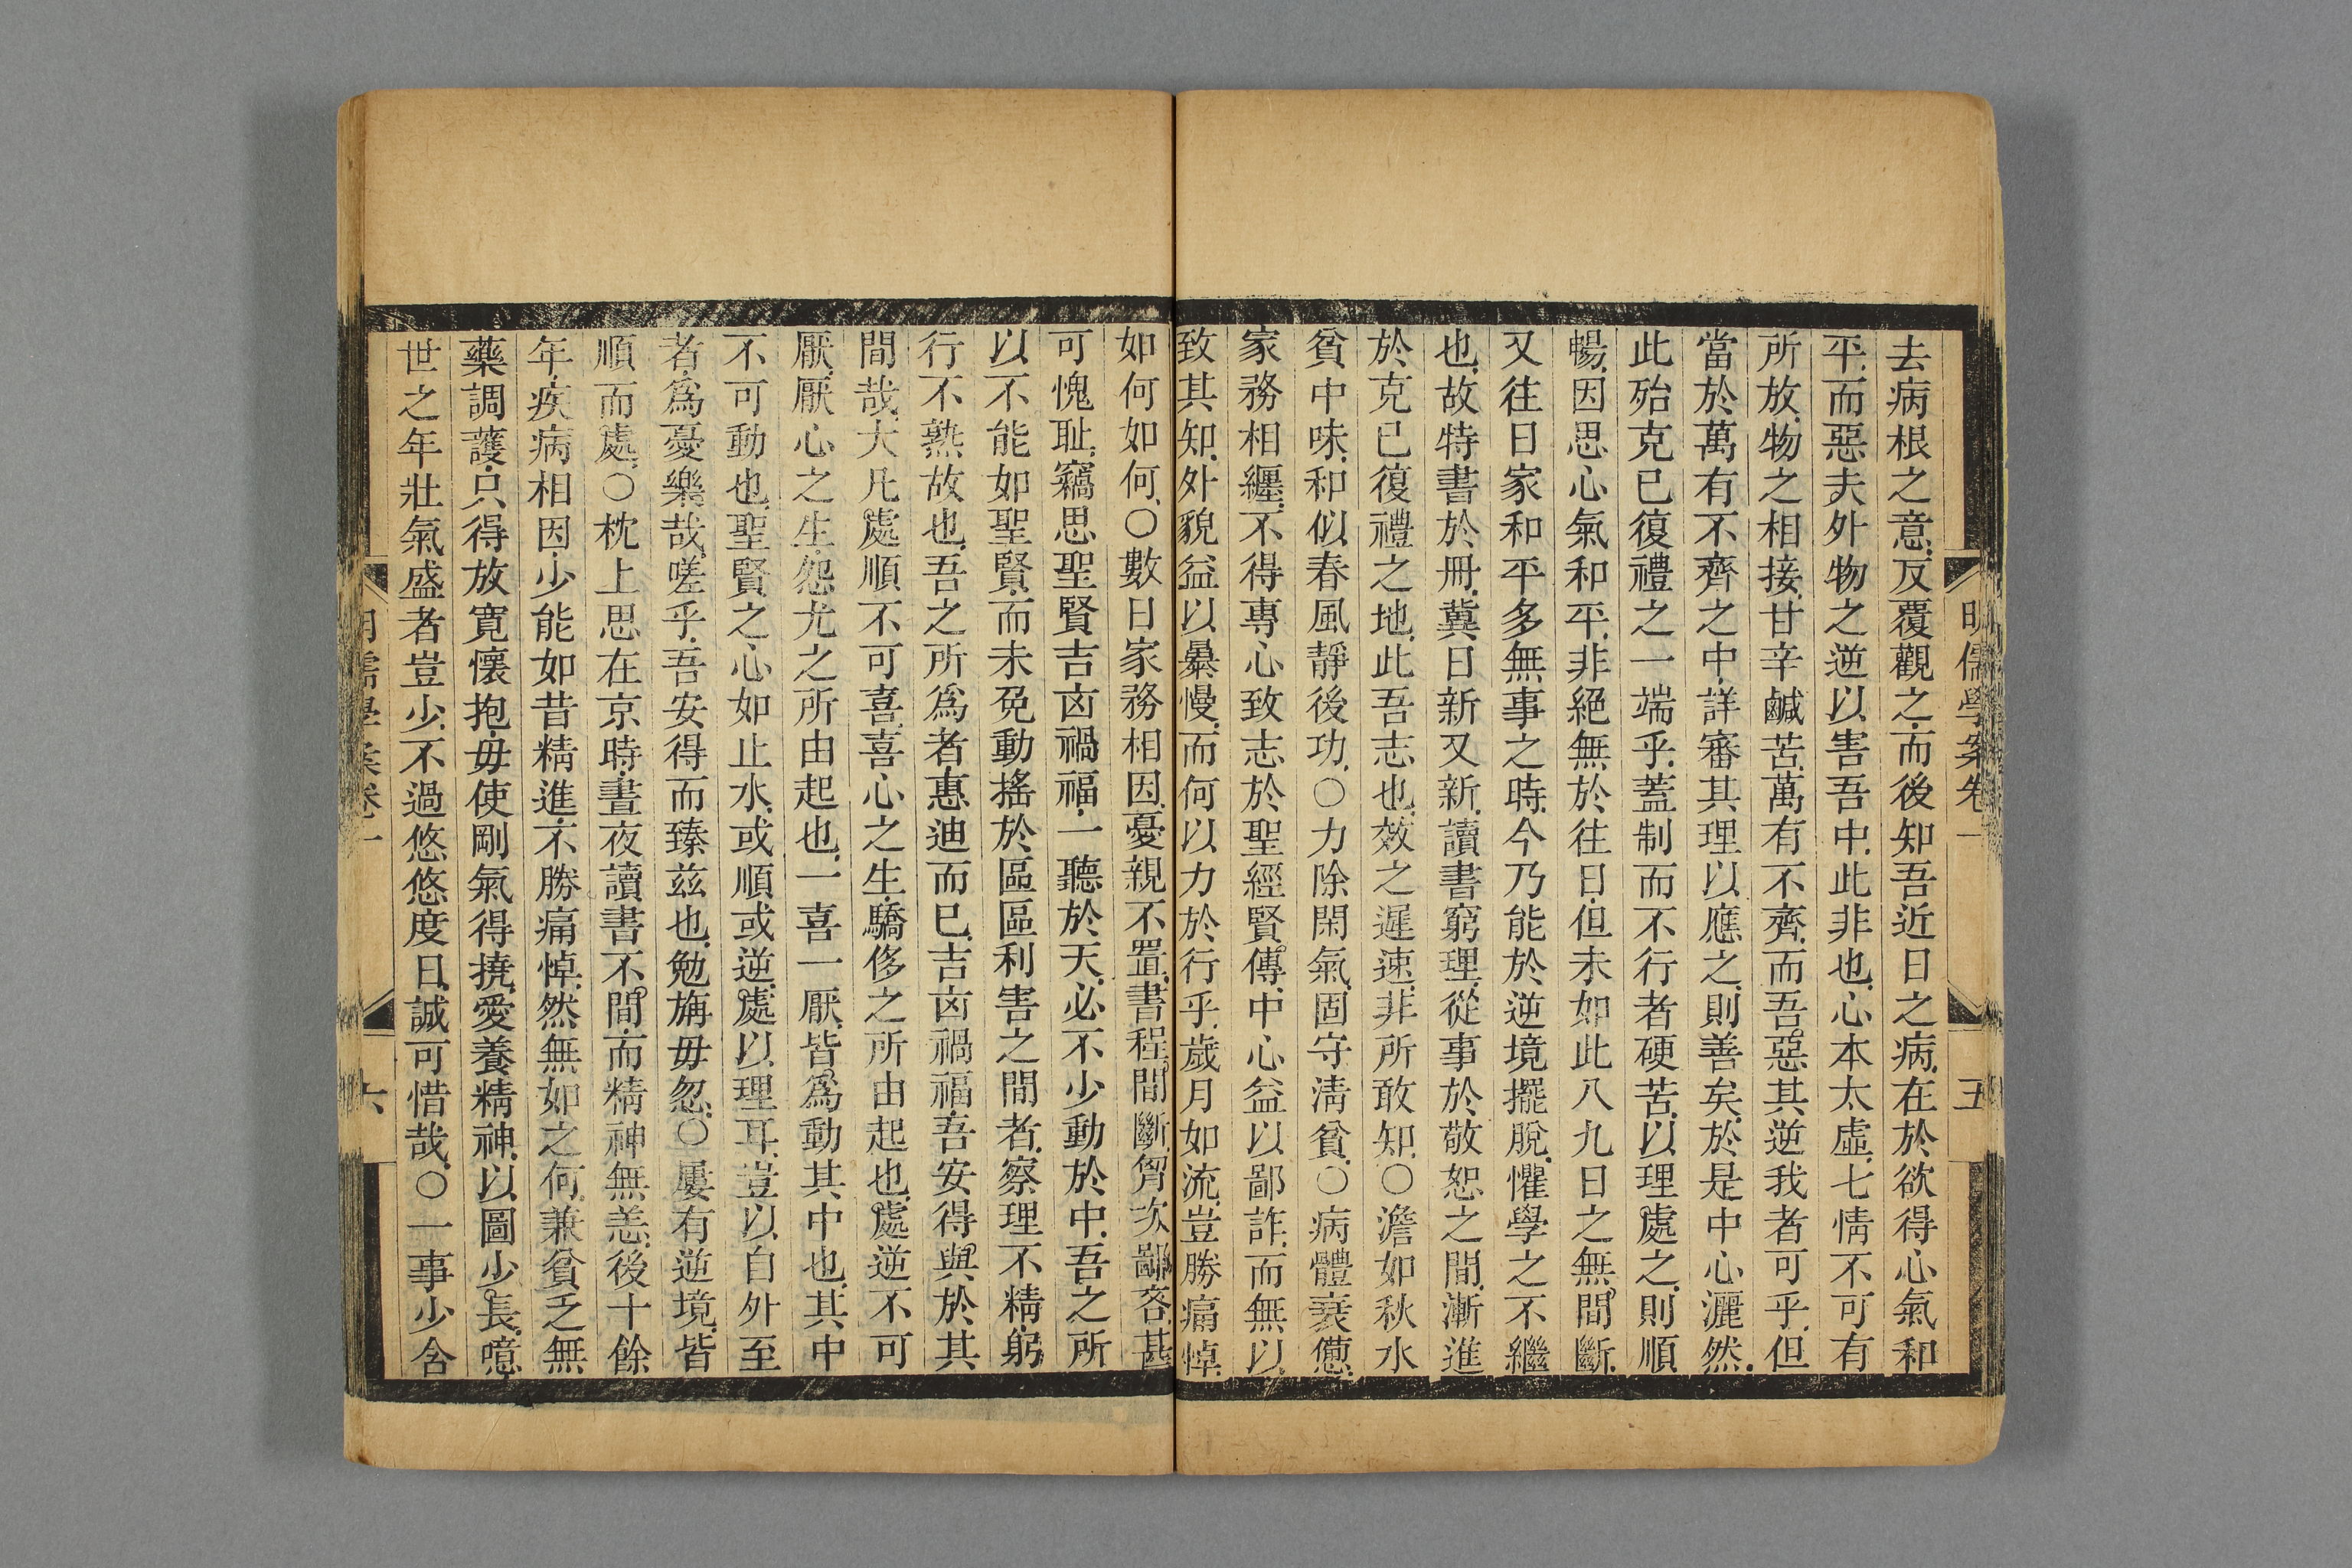 明儒學案卷一
五
去病根之意反覆觀之而後知吾近日之病在於欲得心氣和
平而惡夫外物之逆以害吾中此非也心本太虛七情不可有
所放物之相接甘辛鹹苦萬有不齊而吾惡其逆我者可乎但
當於萬有不齊之中詳審其理以應之則善矣於是中心灑然
此殆克已復禮之一端乎蓋制而不行者硬苦以理處之則順
暢因思心氣和平非絕無於往日但未如此八九日之無間斷
又往日家和平多無事之時今乃能於逆境擺脫懼學之不繼
也故特書於冊冀日新又新讀書窮理從事於敬恕之間漸進
於克已復禮之地此吾志也效之遲速非所敢知○澹如秋水
貧中味和似春風靜後功○力除閑氣固守清貧○病體衰憊
家務相纏不得專心致志於聖經賢傳中心益以鄙詐而無以
致其知外貌益以暴慢而何以力於行乎歲月如流豈勝痛悼
如何如何○數日家務相因憂親不置書程間斷胷次鄙吝甚
可愧耻竊思聖賢吉凶禍福一聽於天必不少動於中吾之所
以不能如聖賢而未免動搖於區區利害之間者察理不精躬
行不熟故也吾之所爲者惠迪而已吉凶禍福吾安得與於其
間哉大凡處順不可喜喜心之生驕侈之所由起也處逆不可
厭厭心之生怨尤之所由起也一喜一厭皆爲動其中也其中
不可動也聖賢之心如止水或順或逆處以理耳豈以自外至
者爲憂樂哉嗟乎吾安得而臻茲也勉旃毋忽○屢有逆境皆
順而處○枕上思在京時晝夜讀書不間而精神無恙後十餘
年疾病相因少能如昔精進不勝痛悼然無如之何兼貧乏無
藥調護只得放寬懷抱毋使剛氣得撓愛養精神以圖少長噫
世之年壯氣盛者豈少不過悠悠度日誠可惜哉○一事少含
明儒學案卷一
六